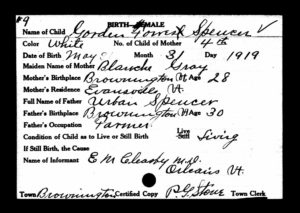 #9
BIRTH—MALE
Name of Child Gordon Forrest Spencer
Color White No. of Child of Mother 4th
Date of Birth May Month 31 Day 1919
Maiden Name of Mother Blanche Gray
Mother's Birthplace Brownington Vt Age 28
Mother's Residence Evansville Vt.
Full Name of Father Urban Spencer
Father's Birthplace Brownington Vt Age 30
Father's Occupation Farmer
Condition of Child as to Live or Still Birth Live Still Living
If Still Birth, the Cause
Name of Informant E M Cleasby M.D.
Orleans Vt.
Town Brownington Certified Copy P.G. Stone Town Clerk